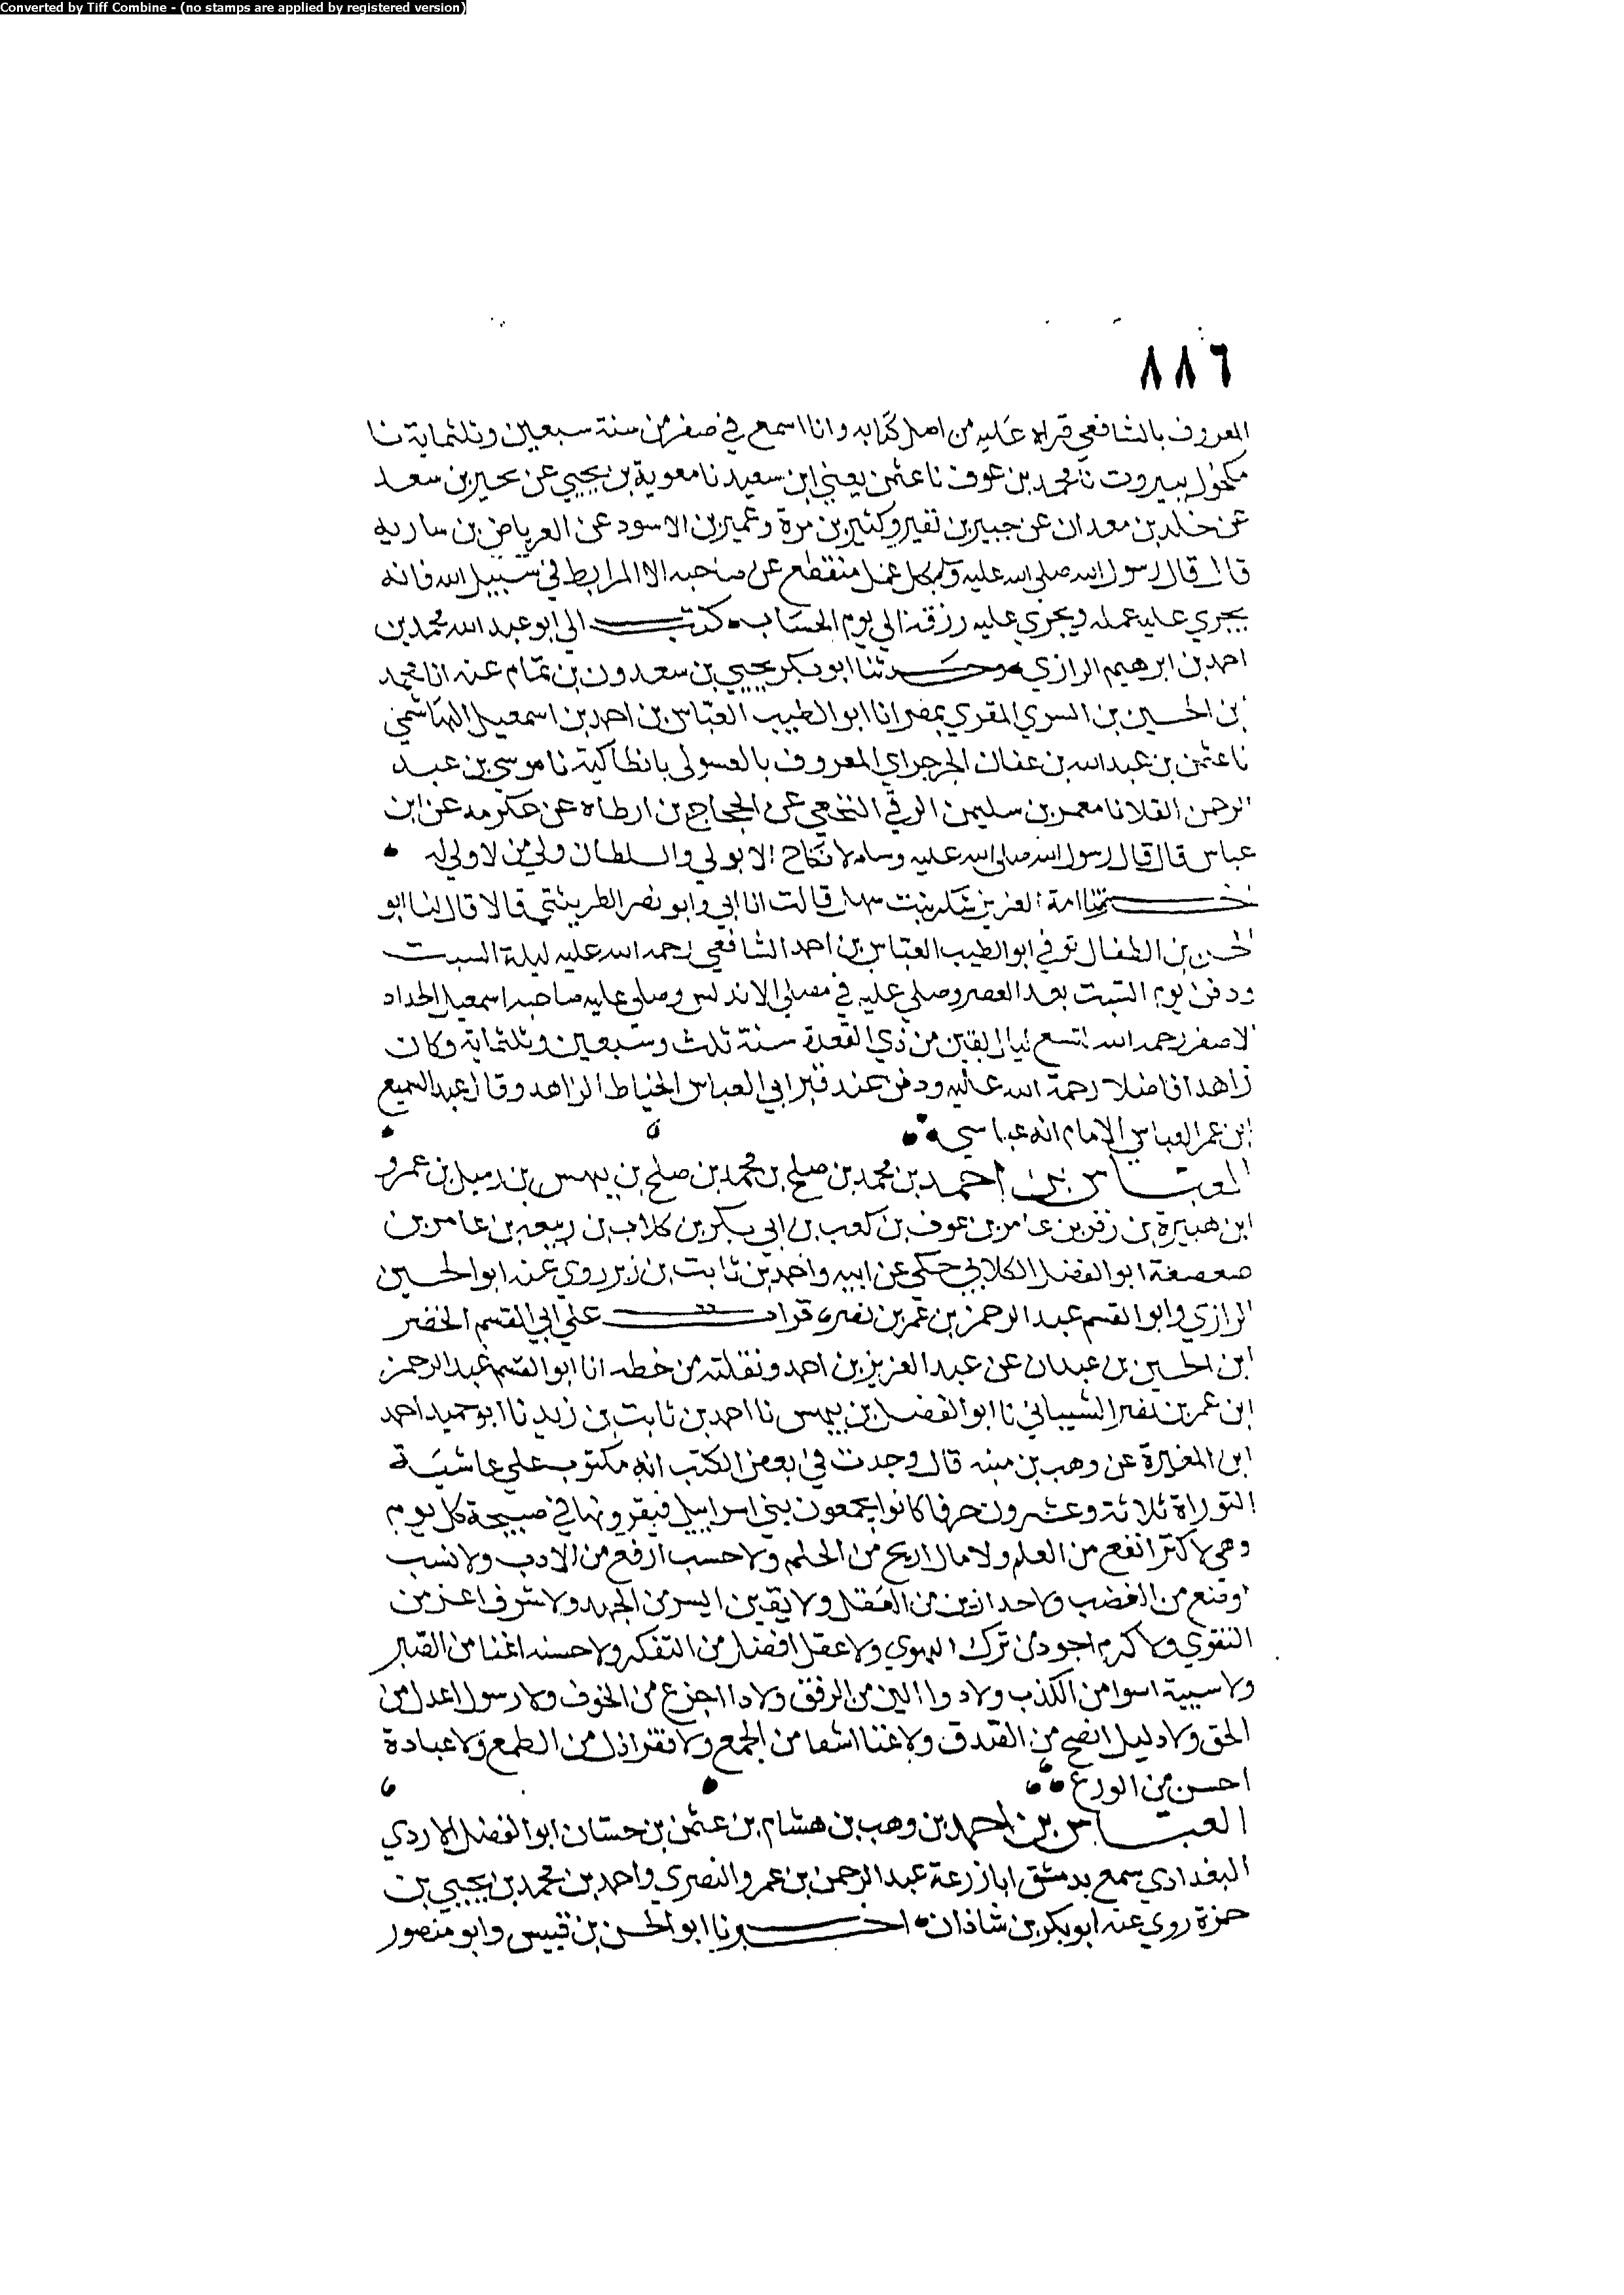 Converted by Tiff Combine - (no stamps are applied by registered version)
٨٨٦
المعروف بالشافعي قراه عليه من اصل كتابه وانا اسمع في صفر من سنة سبعين وثلثماية نا
مكحول ببيروت نا محمد بن عوف نا عثمن يعني ابن سعيد نا معوية بن يحيي عن بحير بن سعد
عن خلد بن معدان عن جبير بن نفير وكثير بن مرة وعمير بن الاسود عن العرباض بن ساريه
قال قال رسول الله صلى الله عليه وسلم كل عمل منقطع عن صاحبه الا المرابط في سبيل الله فانه
يجري عليه عمله ويجري عليه رزقه الي يوم الحساب كتب الي ابو عبد الله محمد بن
احمد بن ابرهيم الرازي وحدثنا ابو بكر يحيي بن سعدون بن تمام عنه انا محمد
بن الحسين بن السري المقري بمصر انا ابو الطيب العباس بن احمد بن اسمعيل الهاشمي
نا عثمن بن عبد الله بن عفان الجرجراي المعروف بالعسولي بانطاكية نا موسي بن عبد
الرحمن القلا نا معمر بن سليمن الرقي النخعي عن الحجاج بن ارطاه عن عكرمه عن ابن
عباس قال قال رسول الله صلى الله عليه وسلم لا نكاح الا بولي والسلطان ولي من لا ولي له
امة العزيز شكر بنت سهل قالت انا ابي وابو نصر الطريثيثي قالا قال لنا ابو
الحسن بن الطفال توفي ابو الطيب العباس بن احمد الشافعي رحمه الله عليه ليلة السبت
ودفن يوم السبت بعد العصر وصلي عليه في مصلي الاندلس وصلي عليه صاحبه اسمعيل الحداد
لاصفر رحمه الله لتسع ليال بقين من ذي القعدة سنة ثلث وسبعين وثلثماية وكان
زاهدا فاضلا رحمة الله عليه ودفن عند قبر ابي العباس الخياط الزاهد وقال عبد السميع
ابن عمر العباسي الامام انه عباسي
العباس بن احمد بن محمد بن صلح بن محمد بن صلح بن بيهس بن زميل بن عمرو
ابن هبيرة بن زفر بن عامر بن عوف بن كعب بن ابي بكر بن كلاب بن ربيعه بن عامر بن
صعصعة ابو الفضل الكلابي حكي عن ابيه واحمد بن ثابت بن زبر روي عنه ابو الحسين
الرازي وابو القسم عبد الرحمن بن عمر بن نصر قرات علي ابي القسم الخضر
ابن الحسين بن عبدان عن عبد العزيز بن احمد ونقلته من خطه انا ابو القسم عبد الرحمن
ابن عمر بن نصر الشيباني نا ابو الفضل بن بيهس نا احمد بن ثابت بن زيد نا ابو حميد احمد
ابن المغيرة عن وهب بن منبه قال وجدت في بعض الكتب انه مكتوب علي حاشية
التوراة ثلاثة وعشرون حرفا كانوا يجمعون بني اسراييل فيقرونها في صبيحة كل يوم
وهي لا كنز انفع من العلم ولا مال اربح من الحلم ولا حسب ارفع من الادب ولا نسب
اوضع من الغضب ولا احد ازين من العقل ولا يقين ايسر من الجهد ولا شرف اعز من
التقوي ولا كرم اجود من ترك الهوي ولا عقل افضل من التفكر ولا حسنه اغنا من الصبر
ولا سيية اسوا من الكذب ولا دوا الين من الرفق ولا دا اجزع من الخوف ولا رسول اعدل من
الحق ولا دليل انصح من الصدق ولا غنا اشفا من الجمع ولا فقر اذل من الطمع ولا عبادة
احسن من الورع
العباس بن احمد بن وهب بن هشام بن عثمن بن حسان ابو الفضل الازدي
البغدادي سمع بدمشق ابا زرعة عبد الرحمن بن عمرو النصري واحمد بن محمد بن يحيي بن
حمزة روي عنه ابو بكر بن شاذان اخبرنا ابو الحسن بن قبيس وابو منصور